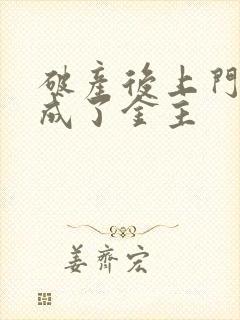 破產後上門
成了金主
姜齊宏